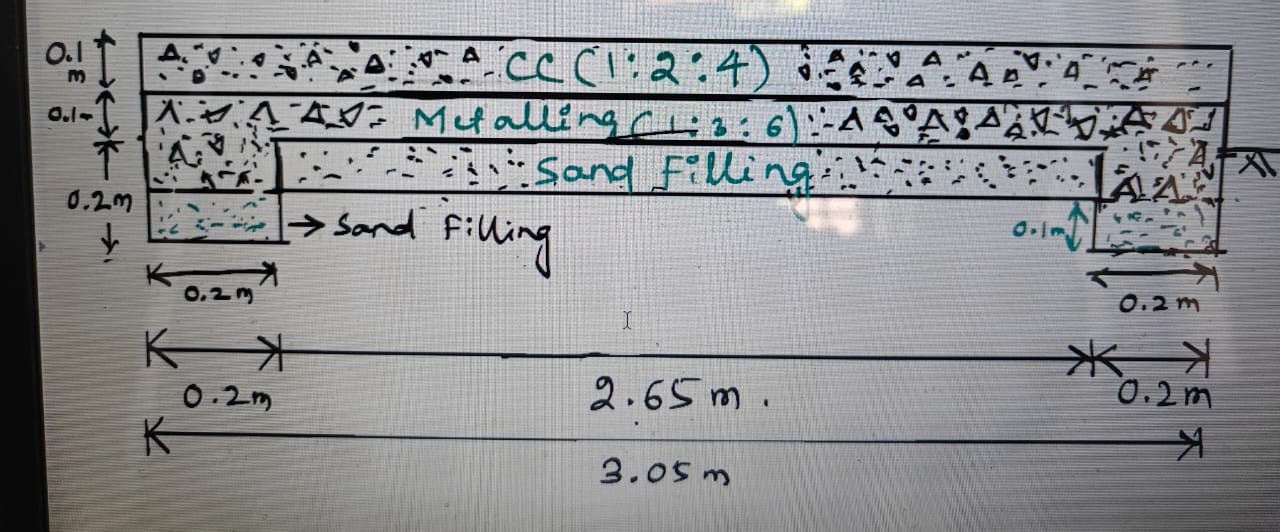 0.1 m
CC (1:2:4)
0.1-
Metalling (1:3:6)
Sand Filling
0.2m
→ Sand Filling
0.1m
0.2m
0.2m
0.2m
2.65m.
0.2m
3.05m